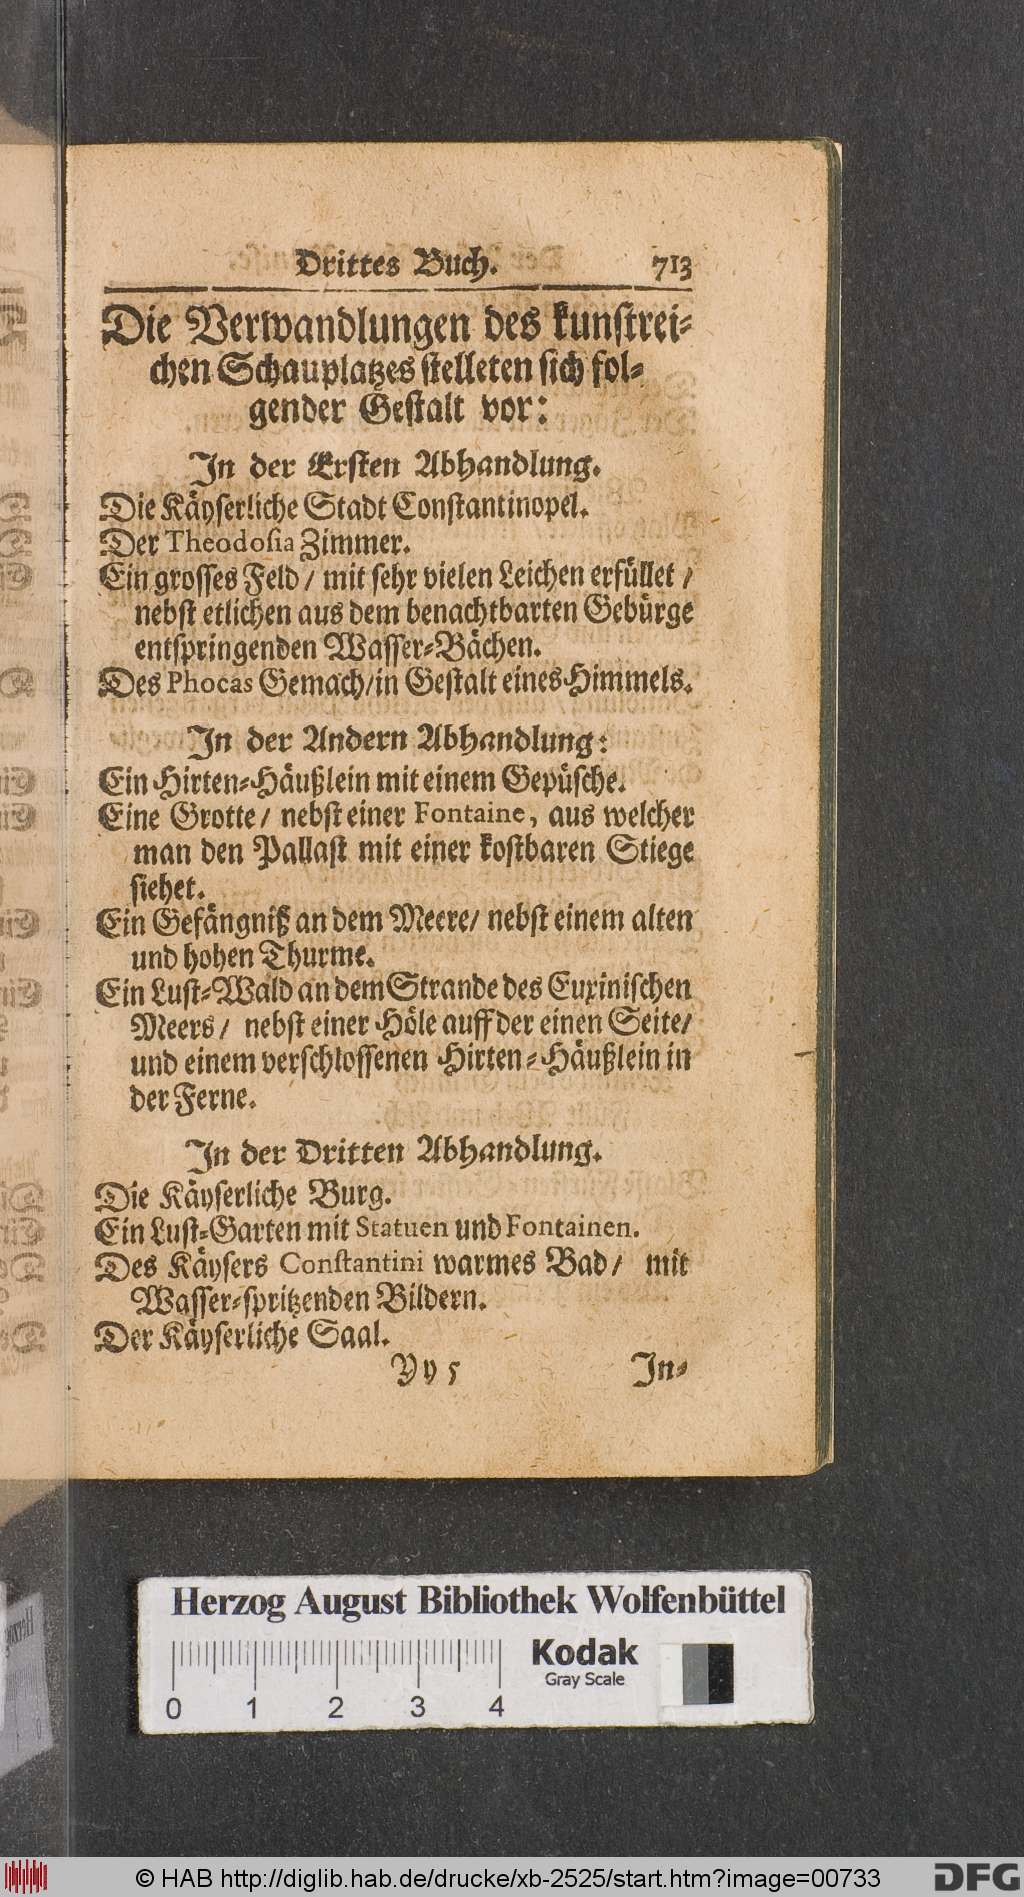 Drittes Buch. 713
Die Verwandlungen des kunstrei-
chen Schauplatzes stelleten sich fol-
gender Gestalt vor:
In der Ersten Abhandlung.
Die Käyserliche Stadt Constantinopel.
Der Theodosia Zimmer.
Ein grosses Feld / mit sehr vielen Leichen erfüllet /
nebst etlichen aus dem benachtbarten Gebürge
entspringenden Wasser-Bächen.
Des Phocas Gemach/in Gestalt eines Himmels.
In der Andern Abhandlung:
Ein Hirten-Häußlein mit einem Gepüsche.
Eine Grotte / nebst einer Fontaine, aus welcher
man den Pallast mit einer kostbaren Stiege
siehet.
Ein Gefängniß an dem Meere/ nebst einem alten
und hohen Thurme.
Ein Lust-Wald an dem Strande des Euxinischen
Meers / nebst einer Höle auff der einen Seite/
und einem verschlossenen Hirten-Häußlein in
der Ferne.
In der Dritten Abhandlung.
Die Käyserliche Burg.
Ein Lust-Garten mit Statuen und Fontainen.
Des Käysers Constantini warmes Bad / mit
Wasser-spritzenden Bildern.
Der Käyserliche Saal.
Yy 5 In-
Herzog August Bibliothek Wolfenbüttel
Kodak
Gray Scale
0 1 2 3 4
© HAB http://diglib.hab.de/drucke/xb-2525/start.htm?image=00733
DFG